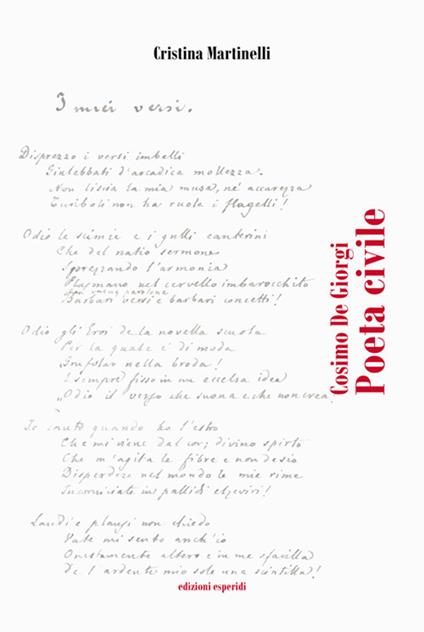 Cristina Martinelli
I miei versi.
Disprezzo i versi imbelli
Giulebbati d'arcadica mollezza.
Non liscia la mia musa, né accarezza
Turiboli non ha ruota i flagelli!
Odio le scimie e i gulli canterini
Che del natio sermone
Sprezzando l'armonia
Plasmano nel cervello imbarocchito
Barbari versi e barbari concetti!
Odio gli Eroi de la novella scuola
Per la quale è di moda
Grufolar nella broda!
E sempre fisso in un eccelsa idea
Odio il verso che suona e che non crea.
Io canto quando ho l'estro
Che mi viene dal cor; divino spirto
Che m'agita le fibre e non desio
Disperdere nel mondo le mie rime
Incorniciate in pallidi elzeviri!
Laudi e plausi non chiedo
Vate mi sento anch'io
Onestamente altero e in me sfavilla
De l'ardente mio sole una scintilla!
Cosimo De Giorgi
Poeta civile
edizioni esperidi